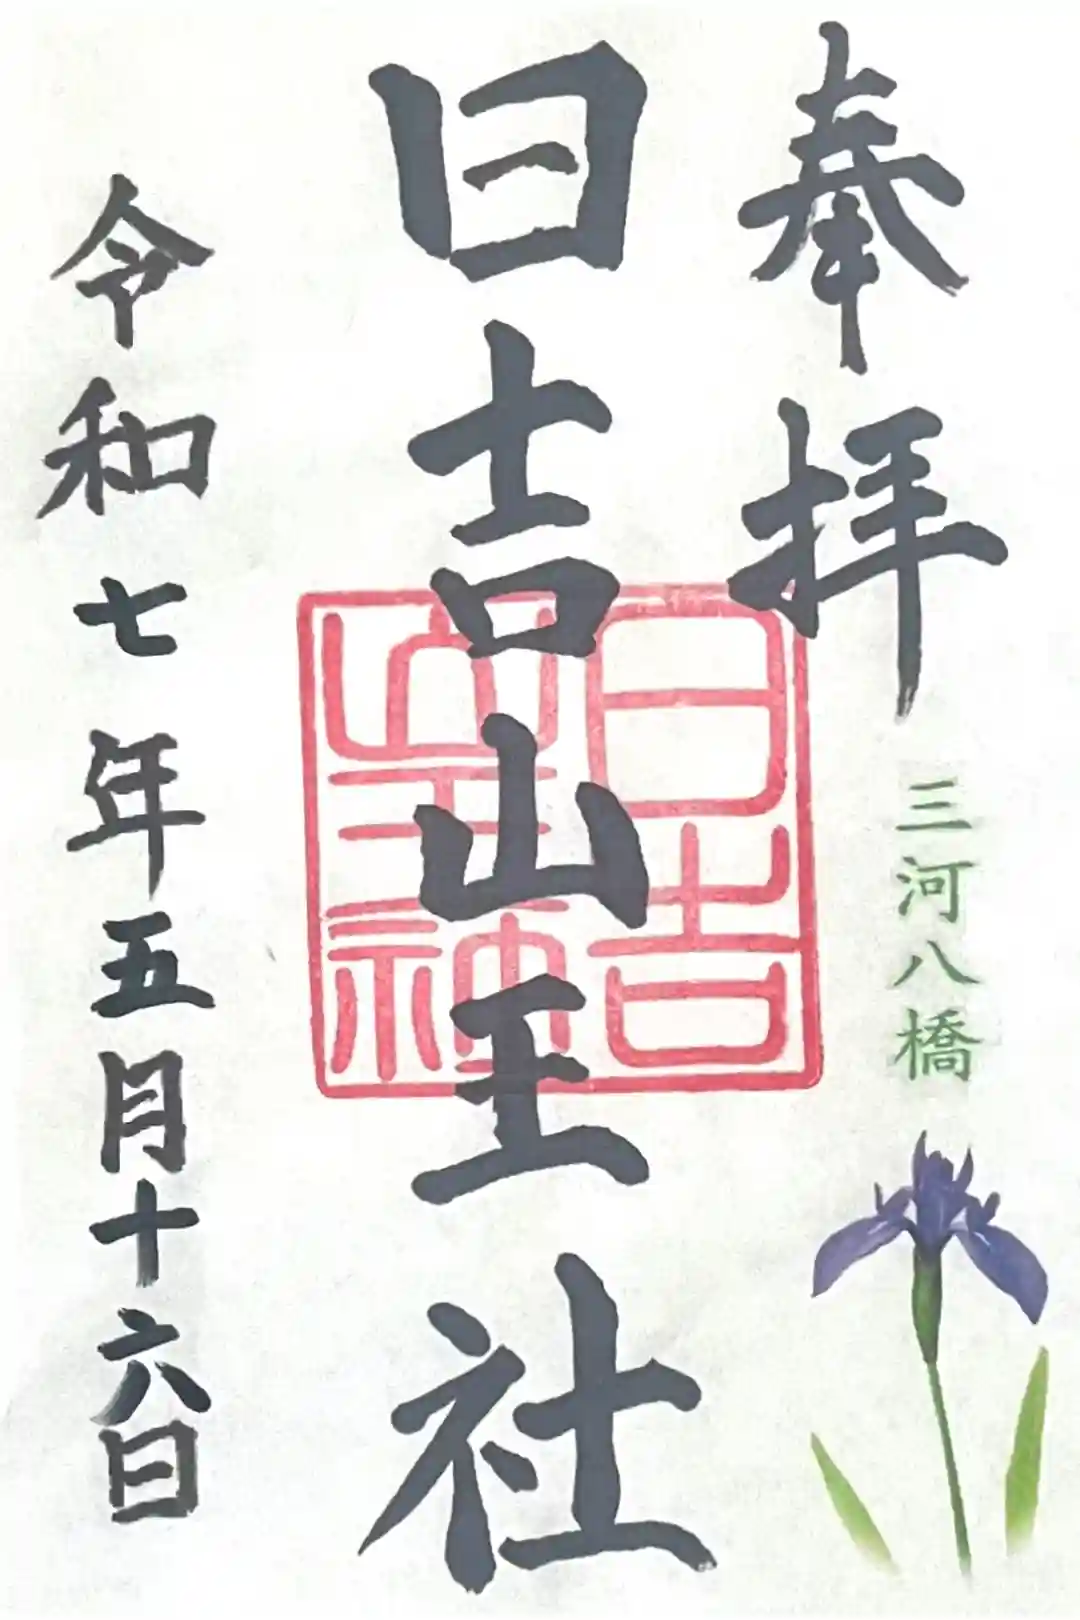 奉拝
三河八橋
日吉山王社
日吉
山王
神社
令和七年五月十六日